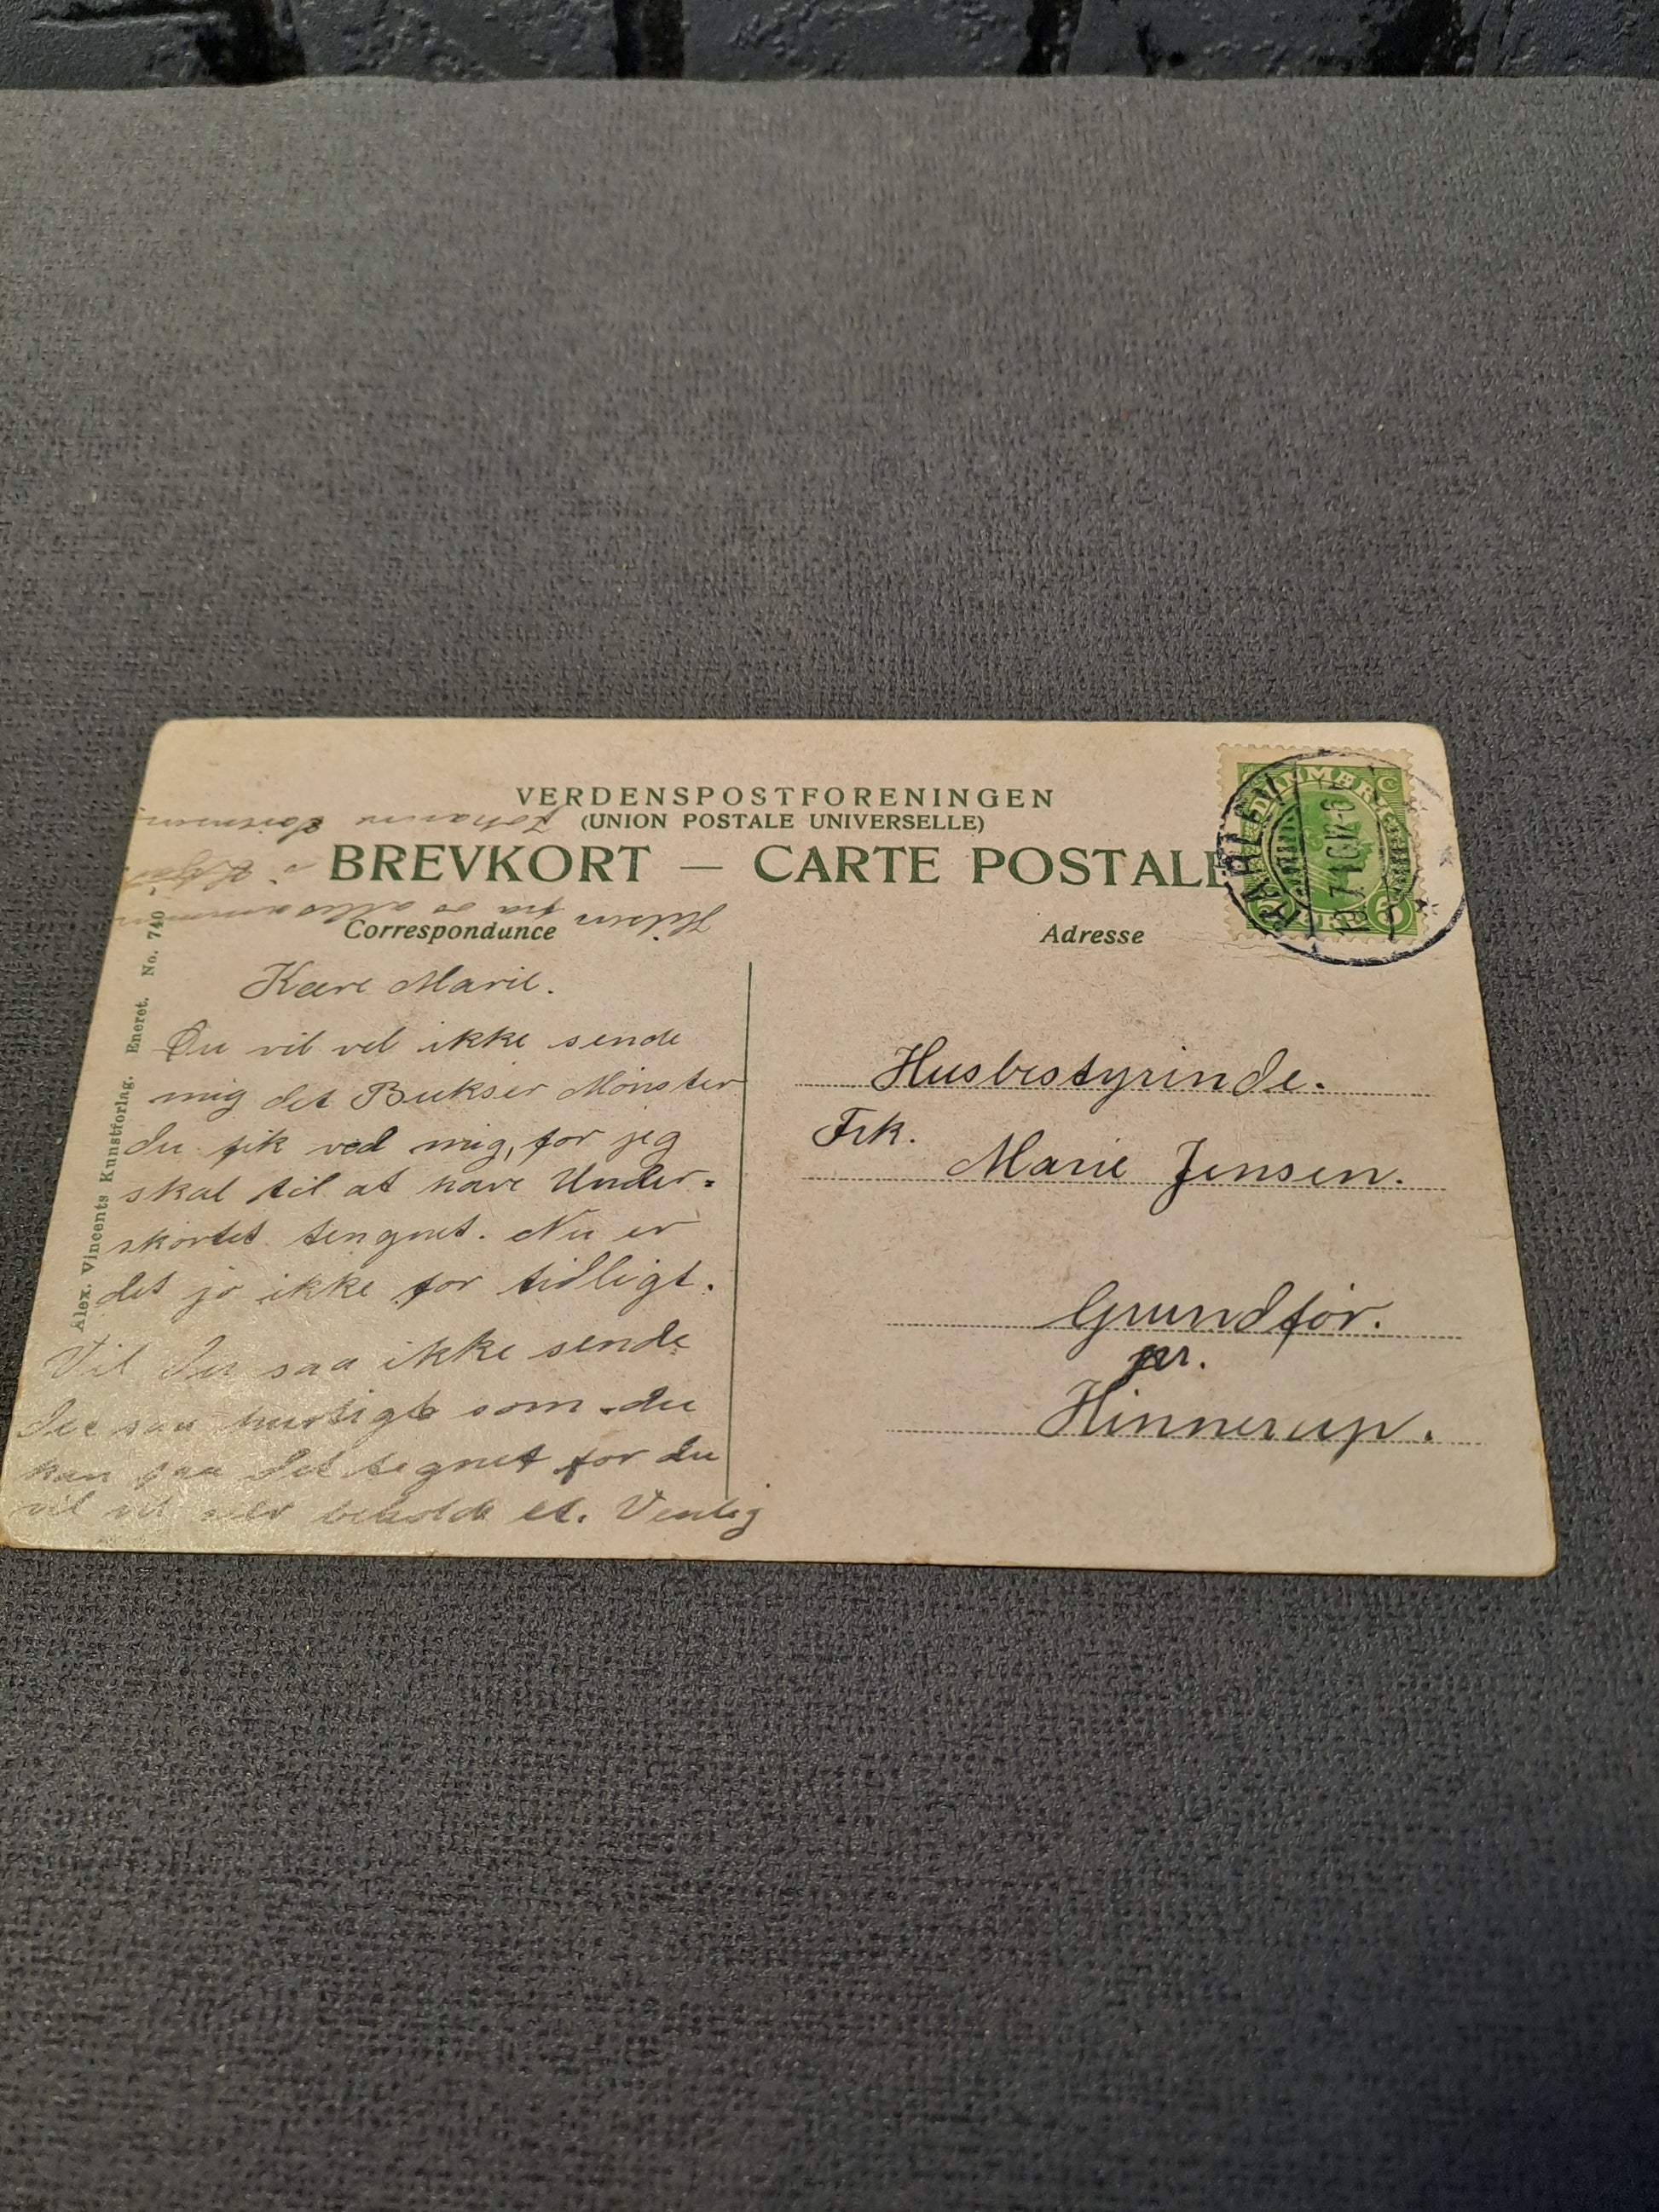 VERDENSPOSTFORENINGEN
(UNION POSTALE UNIVERSELLE)
BREVKORT — CARTE POSTALE
Correspondance
Adresse
DANMARK
5
Alex. Vincents Kunstforlag. Eneret. No. 740
Kære Marie.
Du vil vel ikke sende
mig det Bukser Mønster
du fik ved mig, for jeg
skal til at have Under-
skørtet tengnet. Nu er
det jo ikke for tidligt.
Vil Du saa ikke sende
det saa hurtigt som du
kan faa det tegnet for du
vil vel beholde et. Venlig
Hilsen fra os allesammen
i
Johanne
Husbestyrinde.
Frk. Marie Jensen.
Grundfør.
pr.
Hinnerup.